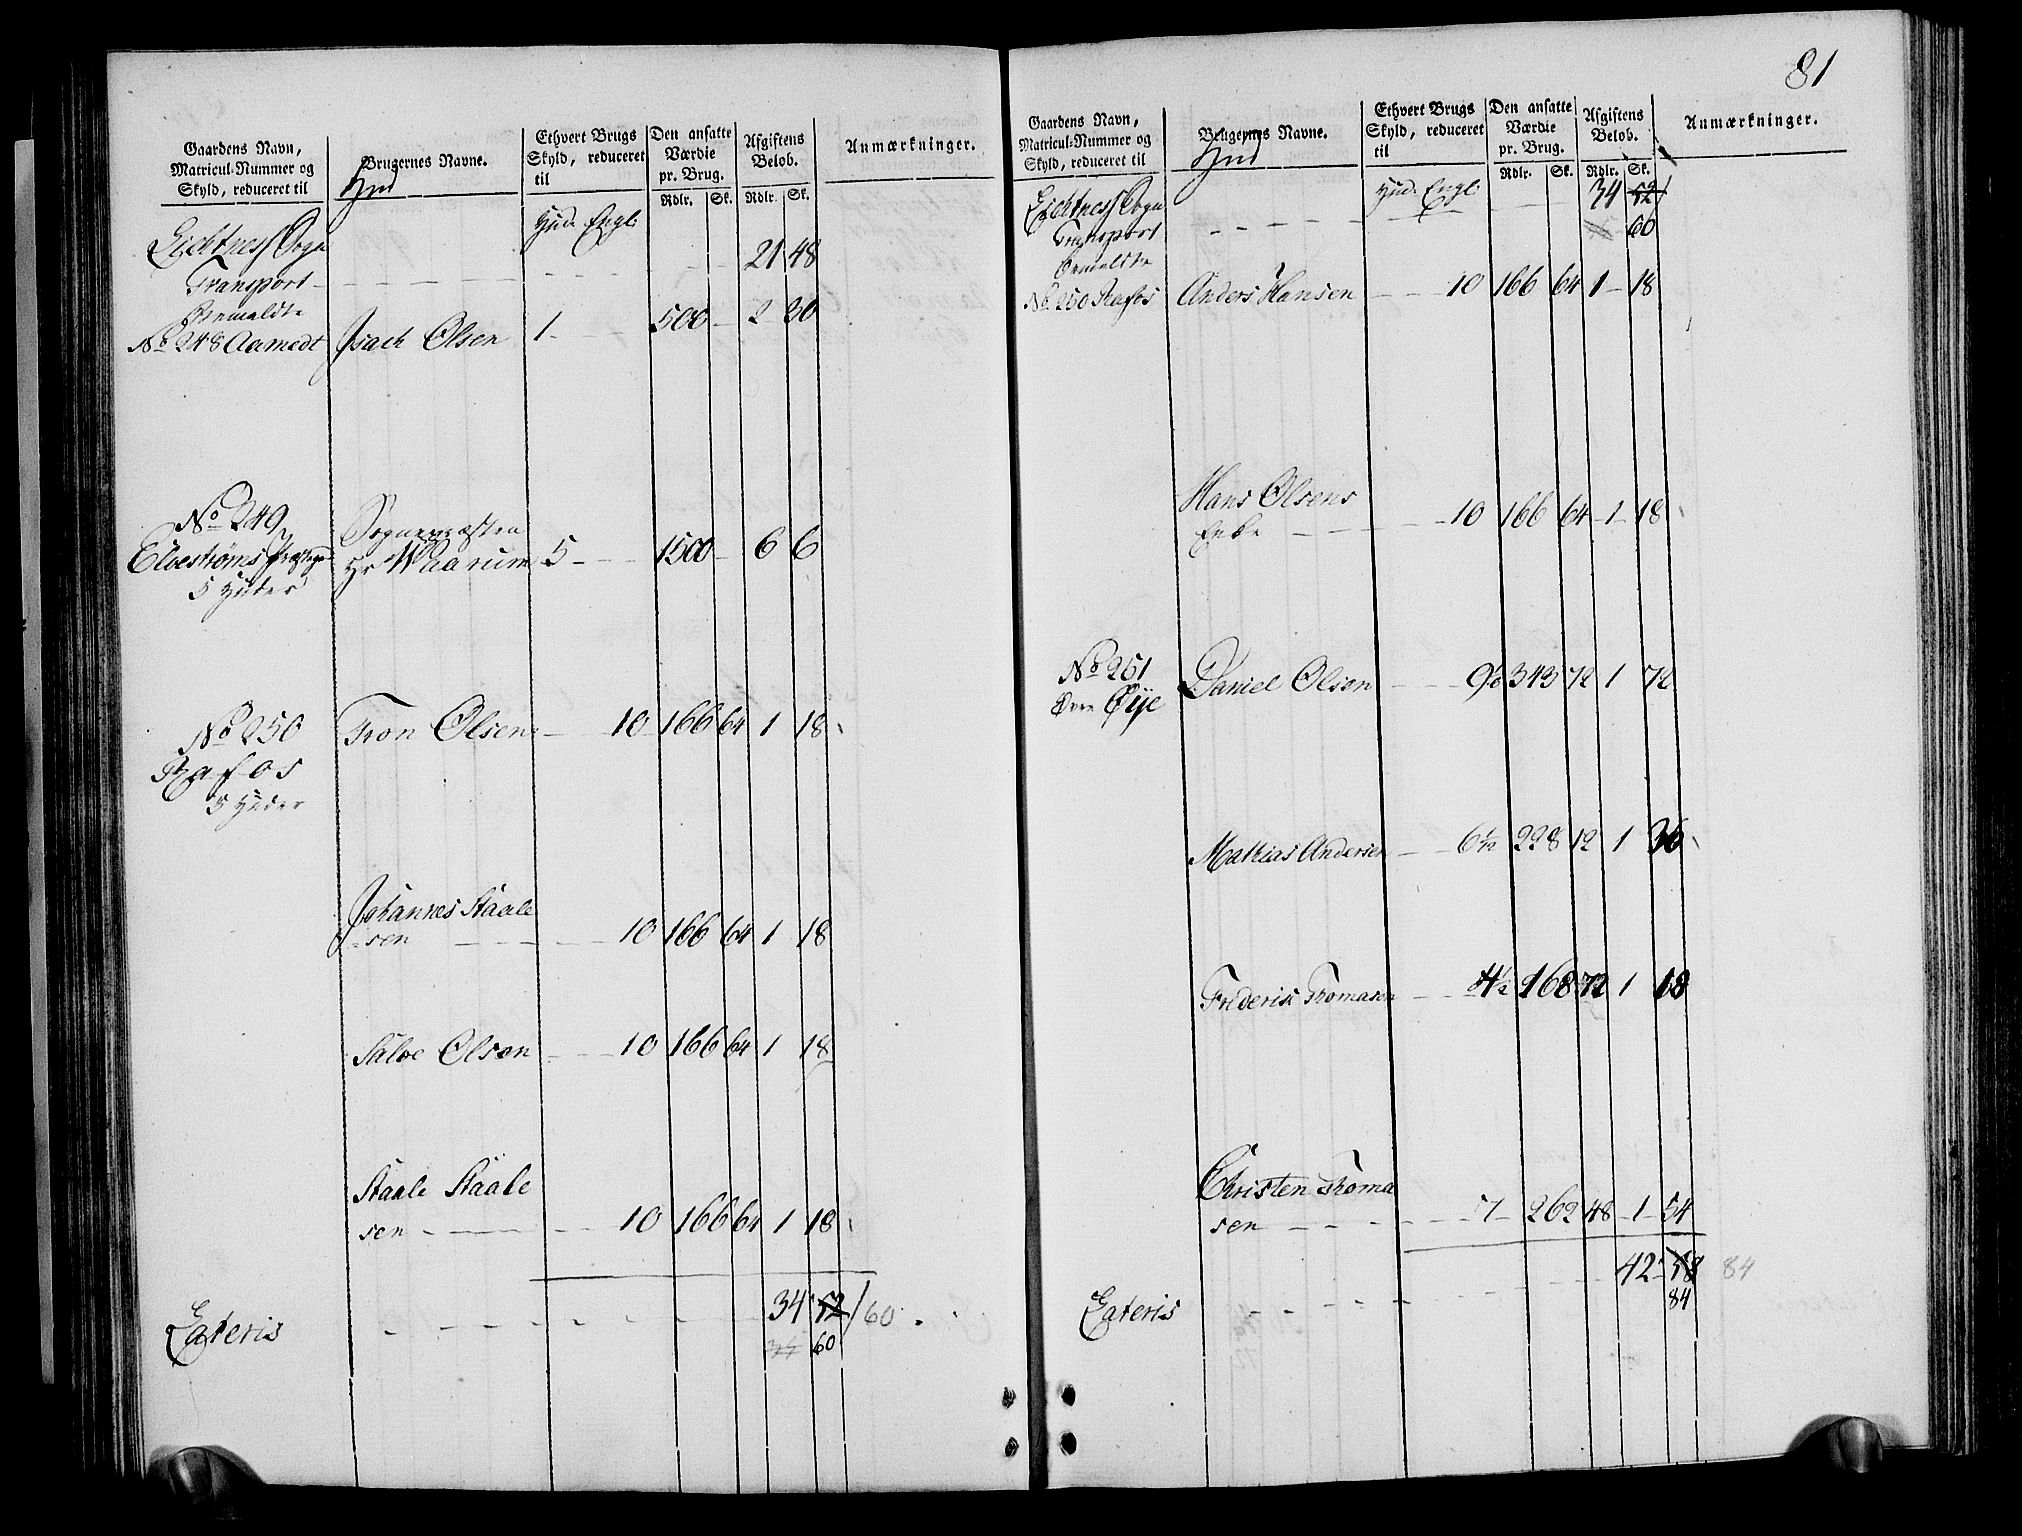 81
Gaardens Navn,
Matricul-Nummer og
Skyld, reduceret til
Brugernes Navne.
Hud
Ethvert Brugs
Skyld, reduceret
til
Den ansatte
Værdie
pr. Brug.
Rdlr. Sk.
Afgiftens
Belob.
Rdlr. Sk.
Anmærkninger.
Hud. Engl:
Sogn
Transport 21 48
No 248 Aamodt Isach Olsen 1 500 2 30
No 249 Sognepræsten
Elvestrøms Hr Waarum 5 1500 6 6
5 Huder
No 250 Tron Olsen 10 166 64 1 18
Rafos
5 Huder
Johannes Staale
sen 10 166 64 1 18
Salve Olsen 10 166 64 1 18
Staale Staale
sen 10 166 64 1 18
34 52 60
Lateris
60
Gaardens Navn,
Matricul-Nummer og
Skyld, reduceret til
Brugernes Navne.
Hud
Ethvert Brugs
Skyld, reduceret
til
Den ansatte
Værdie
pr. Brug.
Rdlr. Sk.
Afgiftens
Belob.
Rdlr. Sk.
Anmærkninger.
Hud. Engl: 34 52
Sogn
Transport 60
No 250 Rafos Anders Hansen 10 166 64 1 18
Hans Olsens
Enke 10 166 64 1 18
No 251 Daniel Olsen 343 72 1 72
Øvre Øye
Mathias Andersen 6½ 228 12 1 36
Frederik Thomasen 4½ 168 72 1 18
Christen Thoma
sen 7 262 48 1 54
42 58 84
84
Lateris